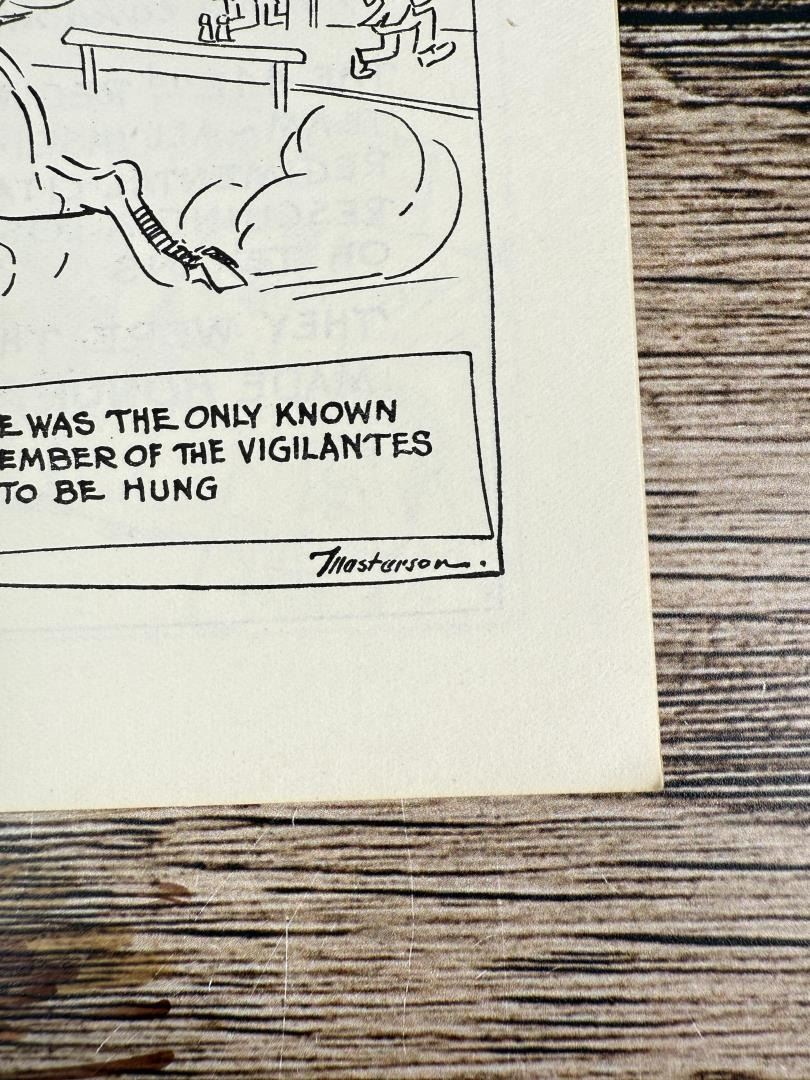 E WAS THE ONLY KNOWN
EMBER OF THE VIGILANTES
TO BE HUNG
Masterson.